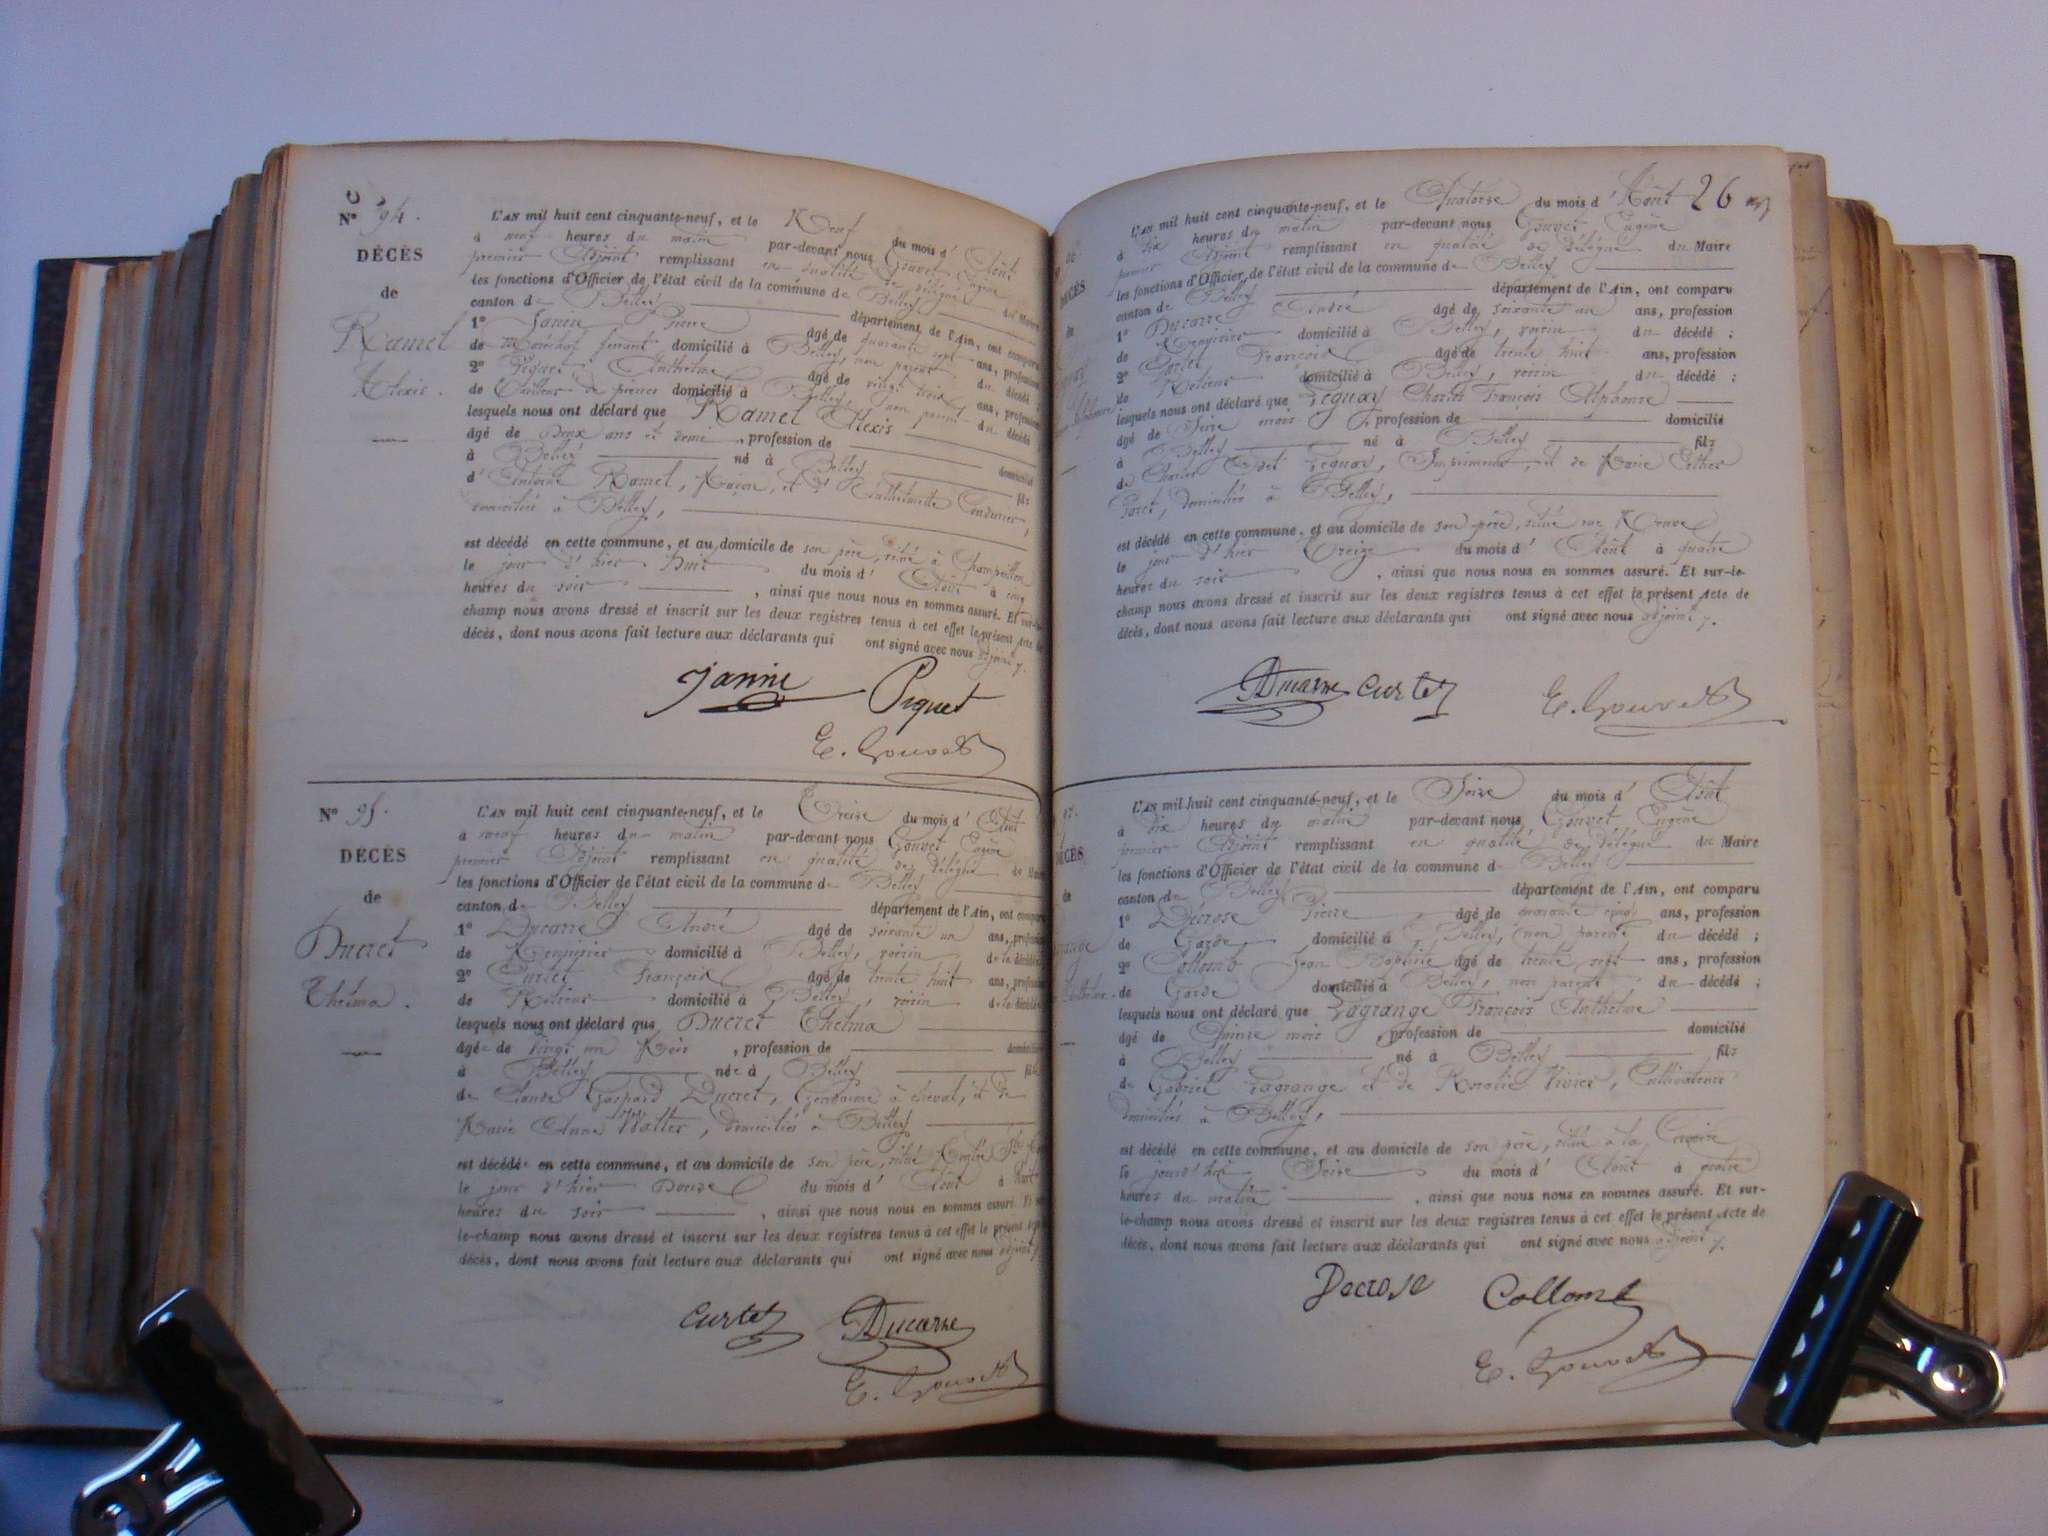 N° 94.
DÉCÈS
de
Ramel
Alexis.
L'AN mil huit cent cinquante-neuf, et le Neuf du mois d' Août
à neuf heures du matin par-devant nous Gouvet Eugène
premier Adjoint remplissant en qualité de délégué du Maire
les fonctions d'Officier de l'état civil de la commune de Belley
canton de Belley département de l'Ain, ont comparu
1° Janin Pierre âgé de quarante sept ans, profession
de Maréchal ferrant domicilié à Belley, non parent du décédé ;
2° Piquet Anthelme âgé de vingt trois ans, profession
de Tailleur de pierres domicilié à Belley, non parent du décédé
lesquels nous ont déclaré que Ramel Alexis
âgé de Deux ans et demi, profession de domicilié
à Belley né à Belley fils
d' Antoine Ramel, Maçon, et d'
domiciliés à Belley,
est décédé en cette commune, et au domicile de son père, situé à Champeillon
le jour d'hier Huit du mois d' Août à cinq
heures du soir , ainsi que nous nous en sommes assuré. Et sur-le-
champ nous avons dressé et inscrit sur les deux registres tenus à cet effet le présent Acte de
décès, dont nous avons fait lecture aux déclarants qui ont signé avec nous adjoint
Janin Piquet
E. Gouvet
N° 95.
DÉCÈS
de
Ducret
Thelma.
L'AN mil huit cent cinquante-neuf, et le Treize du mois d' Août
à neuf heures du matin par-devant nous Gouvet Eugène
premier Adjoint remplissant en qualité de délégué du Maire
les fonctions d'Officier de l'état civil de la commune de Belley
canton de Belley département de l'Ain, ont comparu
1° Ducarre André âgé de soixante un ans, profession
de domicilié à Belley, voisin de la décédée
2° Curtet François âgé de trente huit ans, profession
de Relieur domicilié à Belley, voisin de la décédée
lesquels nous ont déclaré que Ducret Thelma
âgée de vingt un Mois, profession de domiciliée
à Belley née à Belley fille
de Claude Gaspard Ducret, Gendarme à cheval, et de
Marie Anne Walter, domiciliés à Belley
est décédée en cette commune, et au domicile de son père, situé
le jour d'hier Douze du mois d' Août à huit
heures du soir , ainsi que nous nous en sommes assuré. Et sur-
le-champ nous avons dressé et inscrit sur les deux registres tenus à cet effet le présent acte
décès, dont nous avons fait lecture aux déclarants qui ont signé avec nous adjoint
Curtet Ducarre
E. Gouvet
26
DÉCÈS
de
L'AN mil huit cent cinquante-neuf, et le Quatorze du mois d' Août
à dix heures du matin par-devant nous Gouvet Eugène
premier Adjoint remplissant en qualité de délégué du Maire
les fonctions d'Officier de l'état civil de la commune de Belley
canton de Belley département de l'Ain, ont comparu
1° Ducarre André âgé de soixante un ans, profession
de domicilié à Belley, voisin du décédé ;
2° Curtet François âgé de trente huit ans, profession
de Relieur domicilié à Belley, voisin du décédé ;
lesquels nous ont déclaré que Peguay Charles François Alphonse
âgé de Seize mois, profession de domicilié
à Belley né à Belley fils
de Charles Peguay, Imprimeur, et de Marie Esther
domiciliés à Belley,
est décédé en cette commune, et au domicile de son père, situé rue Neuve
le jour d'hier Treize du mois d' Août à quatre
heures du soir , ainsi que nous nous en sommes assuré. Et sur-le-
champ nous avons dressé et inscrit sur les deux registres tenus à cet effet le présent Acte de
décès, dont nous avons fait lecture aux déclarants qui ont signé avec nous adjoint
Ducarre Curtet E. Gouvet
97.
DÉCÈS
de
L'AN mil huit cent cinquante-neuf, et le Seize du mois d' Août
à dix heures du matin par-devant nous Gouvet Eugène
premier Adjoint remplissant en qualité de délégué du Maire
les fonctions d'Officier de l'état civil de la commune de Belley
canton de Belley département de l'Ain, ont comparu
1° Décrose Pierre âgé de quarante cinq ans, profession
de Garde domicilié à Belley, non parent du décédé ;
2° Collomb Jean Baptiste âgé de trente sept ans, profession
de Garde domicilié à Belley, non parent du décédé ;
lesquels nous ont déclaré que Lagrange François Anthelme
âgé de Quinze mois, profession de domicilié
à Belley né à Belley fils
de Gabriel Lagrange et de Rosalie Vivier, Cultivateurs
domiciliés à Belley,
est décédé en cette commune, et au domicile de son père, situé à la
le jourd'hui Seize du mois d' Août à quatre
heures du matin , ainsi que nous nous en sommes assuré. Et sur-
le-champ nous avons dressé et inscrit sur les deux registres tenus à cet effet le présent Acte de
décès, dont nous avons fait lecture aux déclarants qui ont signé avec nous adjoint
Decrose Collomb
E. Gouvet